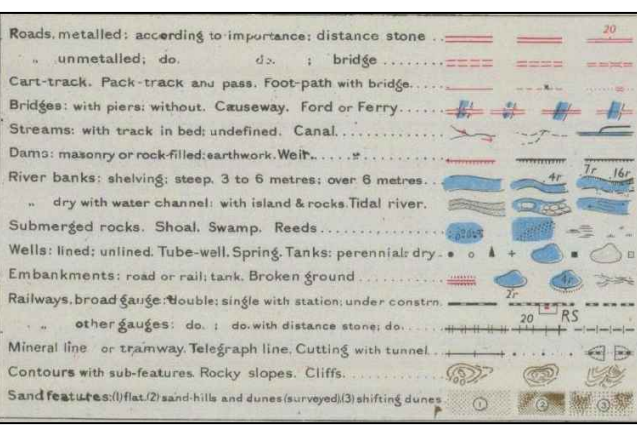 Roads, metalled: according to importance; distance stone 20
" unmetalled; do. do. ; bridge
Cart-track. Pack-track and pass. Foot-path with bridge
Bridges: with piers; without. Causeway. Ford or Ferry
Streams: with track in bed; undefined. Canal
Dams: masonry or rock-filled; earthwork. Weir
River banks: shelving; steep, 3 to 6 metres; over 6 metres 4r 7r 16r
" dry with water channel; with island & rocks. Tidal river.
Submerged rocks. Shoal. Swamp. Reeds
Wells: lined; unlined. Tube-well. Spring. Tanks: perennial; dry
Embankments: road or rail; tank. Broken ground 2r 4r
Railways, broad gauge: double; single with station; under constrn. RS
" " other gauges: do. ; do. with distance stone; do. 20
Mineral line or tramway. Telegraph line. Cutting with tunnel
Contours with sub-features. Rocky slopes. Cliffs. 500
Sand features: (1) flat, (2) sand-hills and dunes (surveyed), (3) shifting dunes 1 2 3